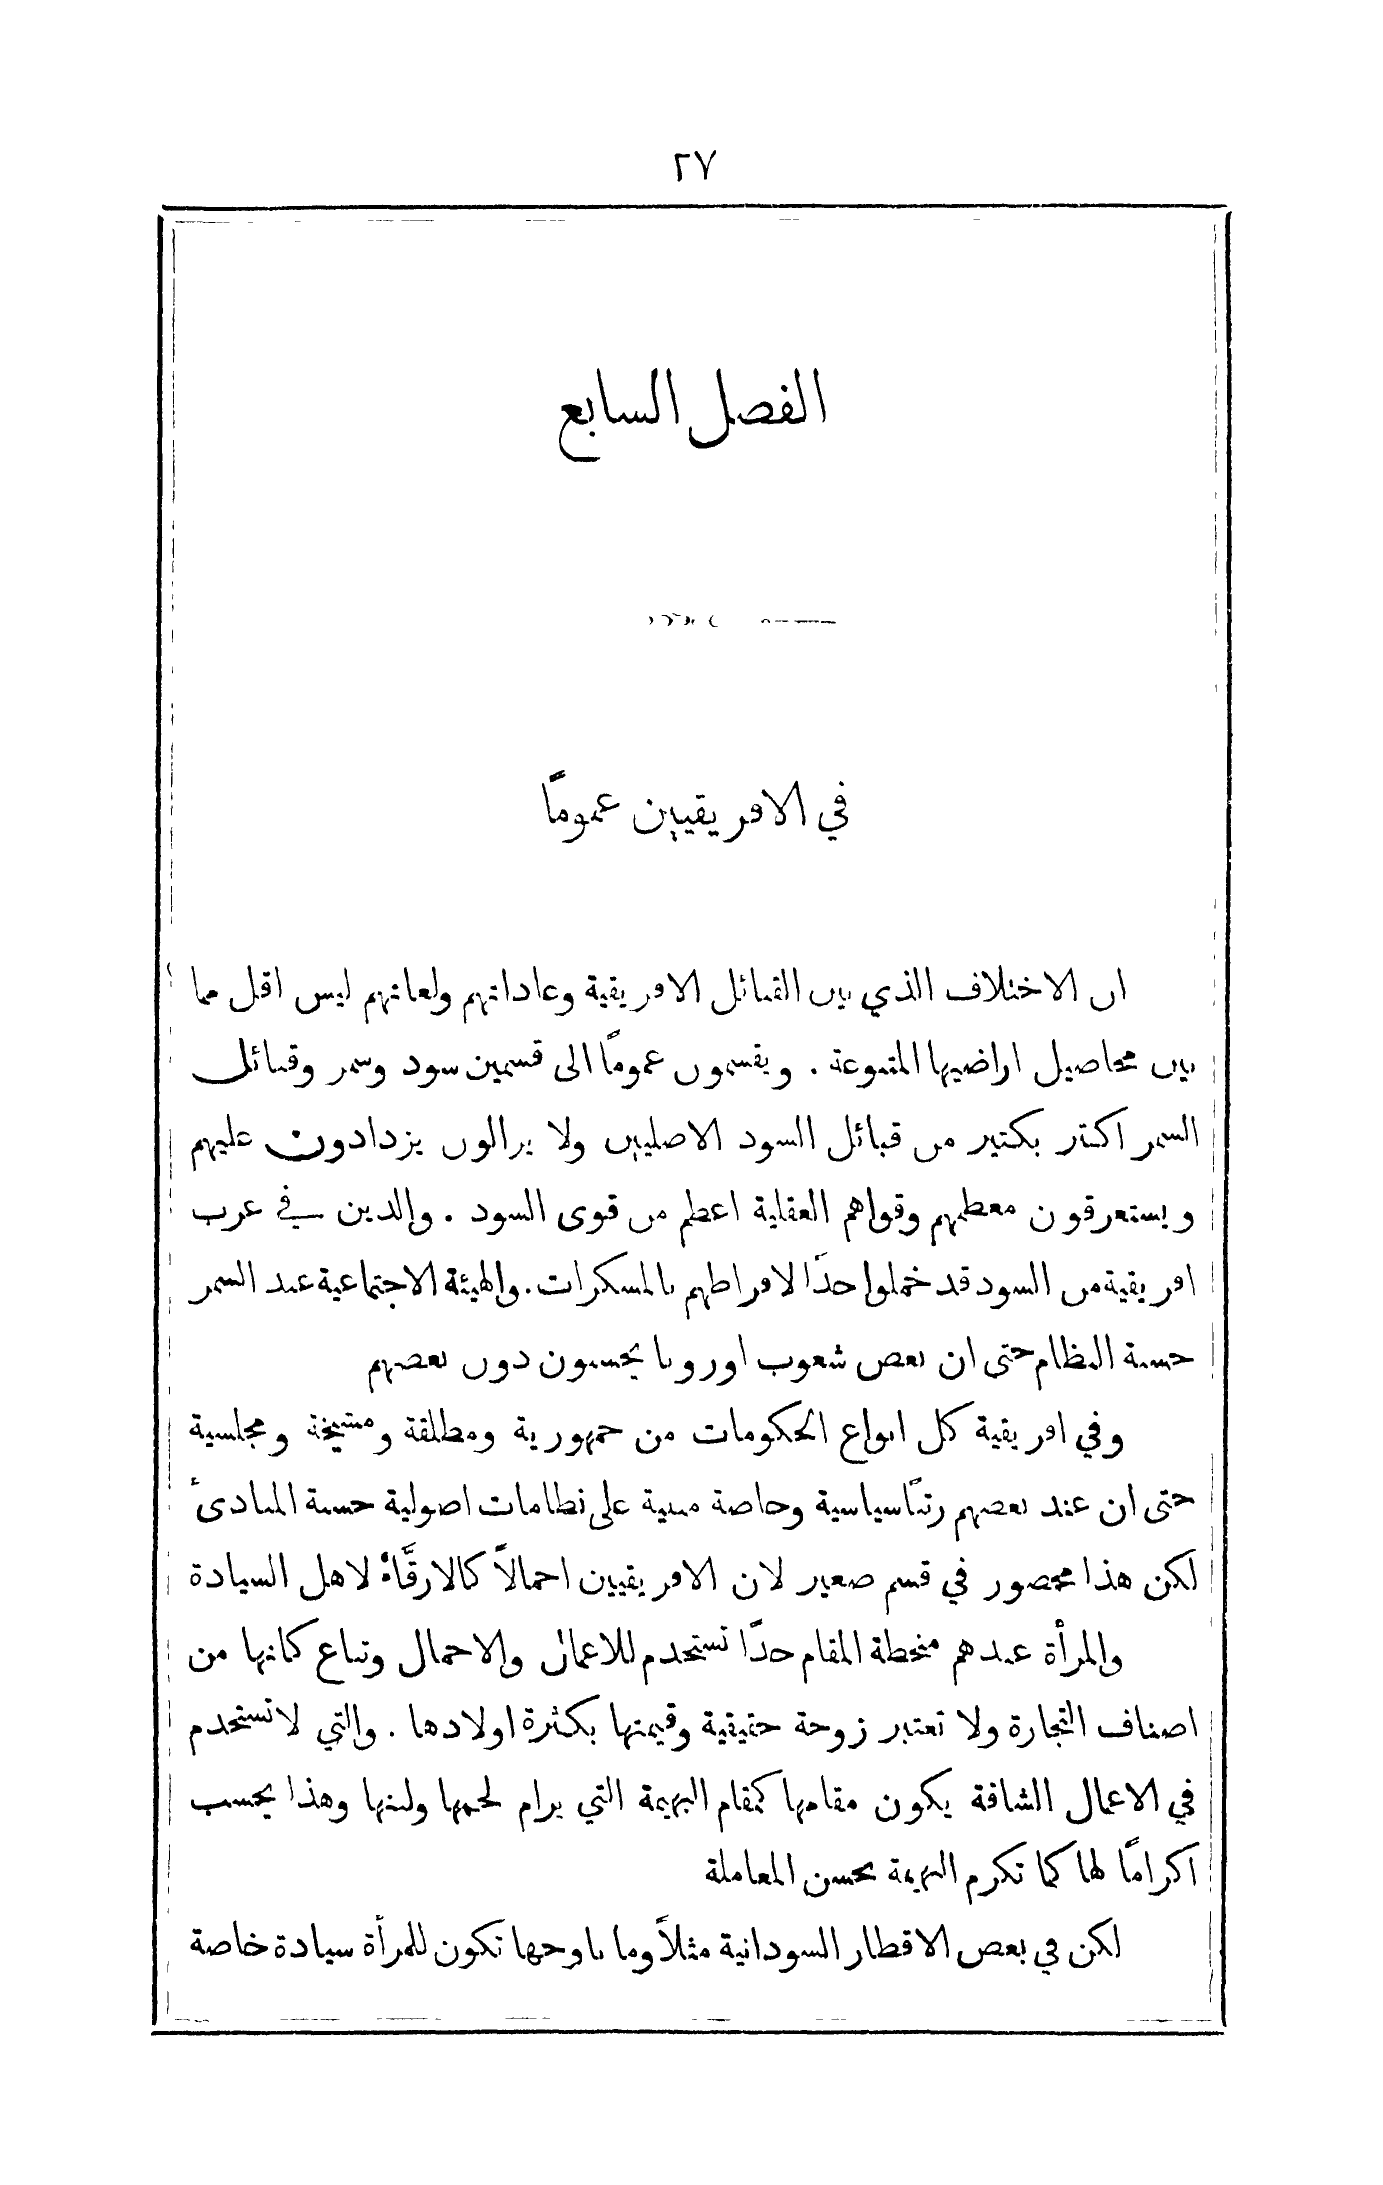 ٢٧
الفصل السابع
في الافريقيين عموماً
ان الاختلاف الذي بين القبائل الافريقية وعاداتهم ولغاتهم ليس اقل مما
بين محاصيل اراضيها المتنوعة . ويقسمون عموماً الى قسمين سود وسمر وقبائل
السمر اكثر بكثير من قبائل السود الاصليين ولا يزالون يزدادون عليهم
ويستغرقون معظمهم وقواهم العقلية اعظم من قوى السود . والذين في غرب
افريقية من السود قد خملوا جدًّا لافراطهم بالمسكرات . والهيئة الاجتماعية عند السمر
حسنة النظام حتى ان بعض شعوب اوروبا يحسبون دون بعضهم
وفي افريقية كل انواع الحكومات من جمهورية ومطلقة ومشيخة ومجلسية
حتى ان عند بعضهم رتباً سياسية وخاصة مبنية على نظامات اصولية حسنة المبادئ
لكن هذا محصور في قسم صغير لان الافريقيين اجمالاً كالارقَّاء لاهل السيادة
والمرأة عندهم منحطة المقام جدًّا تستخدم للاعمال والاحمال وتباع كانها من
اصناف التجارة ولا تعتبر زوجة حقيقية وقيمتها بكثرة اولادها . والتي لا تستخدم
في الاعمال الشاقة يكون مقامها كمقام البهيمة التي يرام لحمها ولبنها وهذا يحسب
اكراماً لها كما تكرم البهيمة بحسن المعاملة
لكن في بعض الاقطار السودانية مثلاً وما ناوحها تكون للمرأة سيادة خاصة